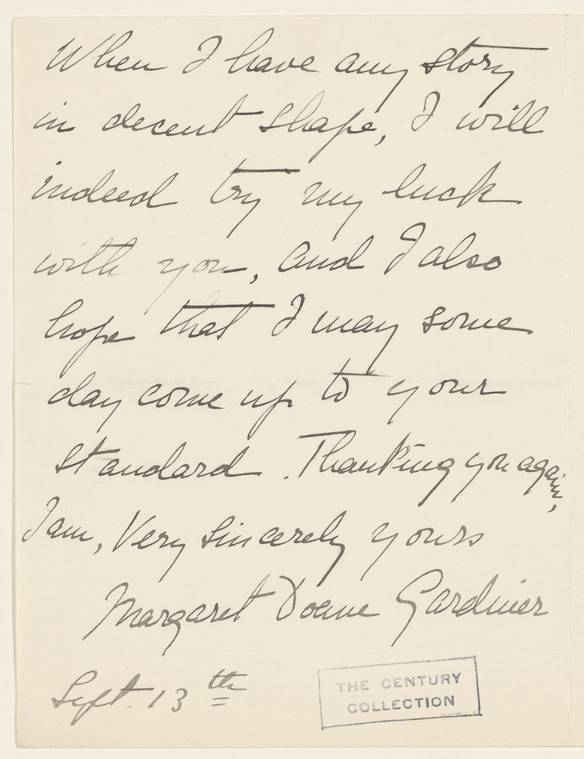 When I have any story
in decent shape, I will
indeed try my luck
with you, and I also
hope that I may some
day come up to your
standard. Thanking you again,
I am, Very sincerely yours
Margaret Doane Gardiner
Sept. 13th
THE CENTURY
COLLECTION